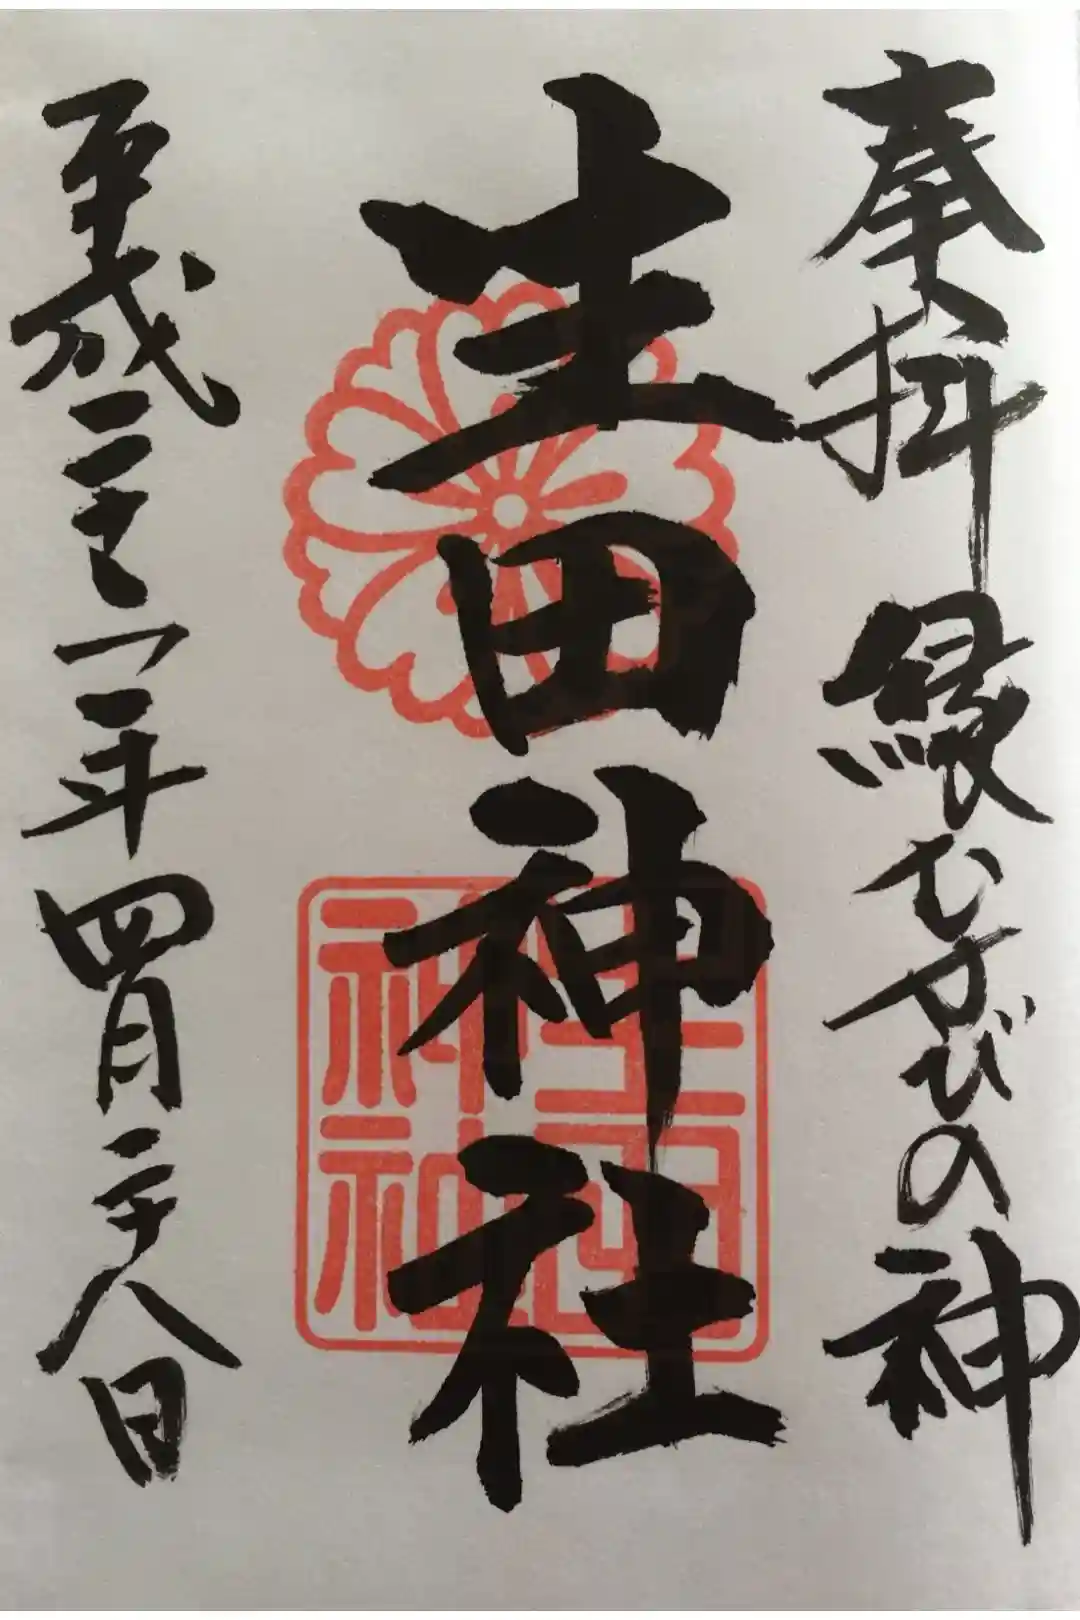 奉拝 縁むすびの神
生田神社
平成三十一年四月二十八日
生田
神社